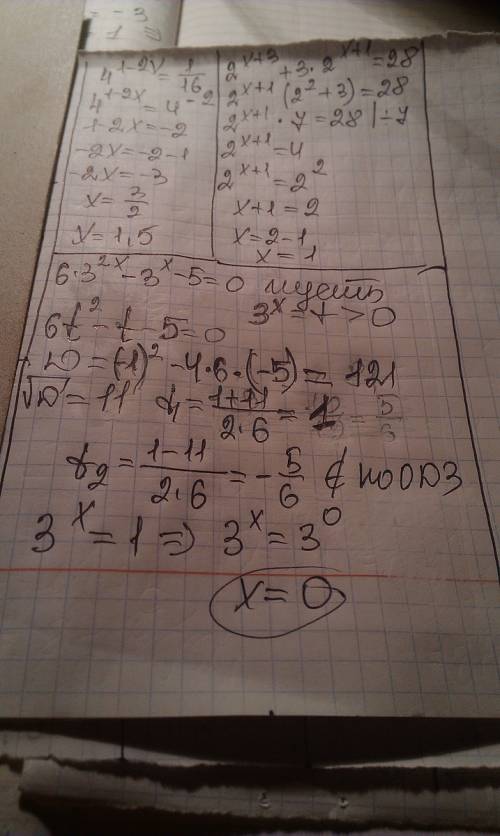 = -3
= 1
4^{1-2x} = 1/16
4^{1-2x} = 4^{-2}
1-2x = -2
-2x = -2-1
-2x = -3
x = 3/2
x = 1,5
2^{x+3} + 3·2^{x+1} = 28
2^{x+1} (2^2+3) = 28
2^{x+1} · 7 = 28 | ÷7
2^{x+1} = 4
2^{x+1} = 2^2
x+1 = 2
x = 2-1
x = 1
6·3^{2x} - 3^x - 5 = 0 пусть
3^x = t > 0
6t^2 - t - 5 = 0
D = (-1)^2 - 4·6·(-5) = 121
√D = 11 t_1 = (1+11)/(2·6) = 1
t_2 = (1-11)/(2·6) = -5/6 ∉ по ОДЗ
3^x = 1 => 3^x = 3^0
x = 0